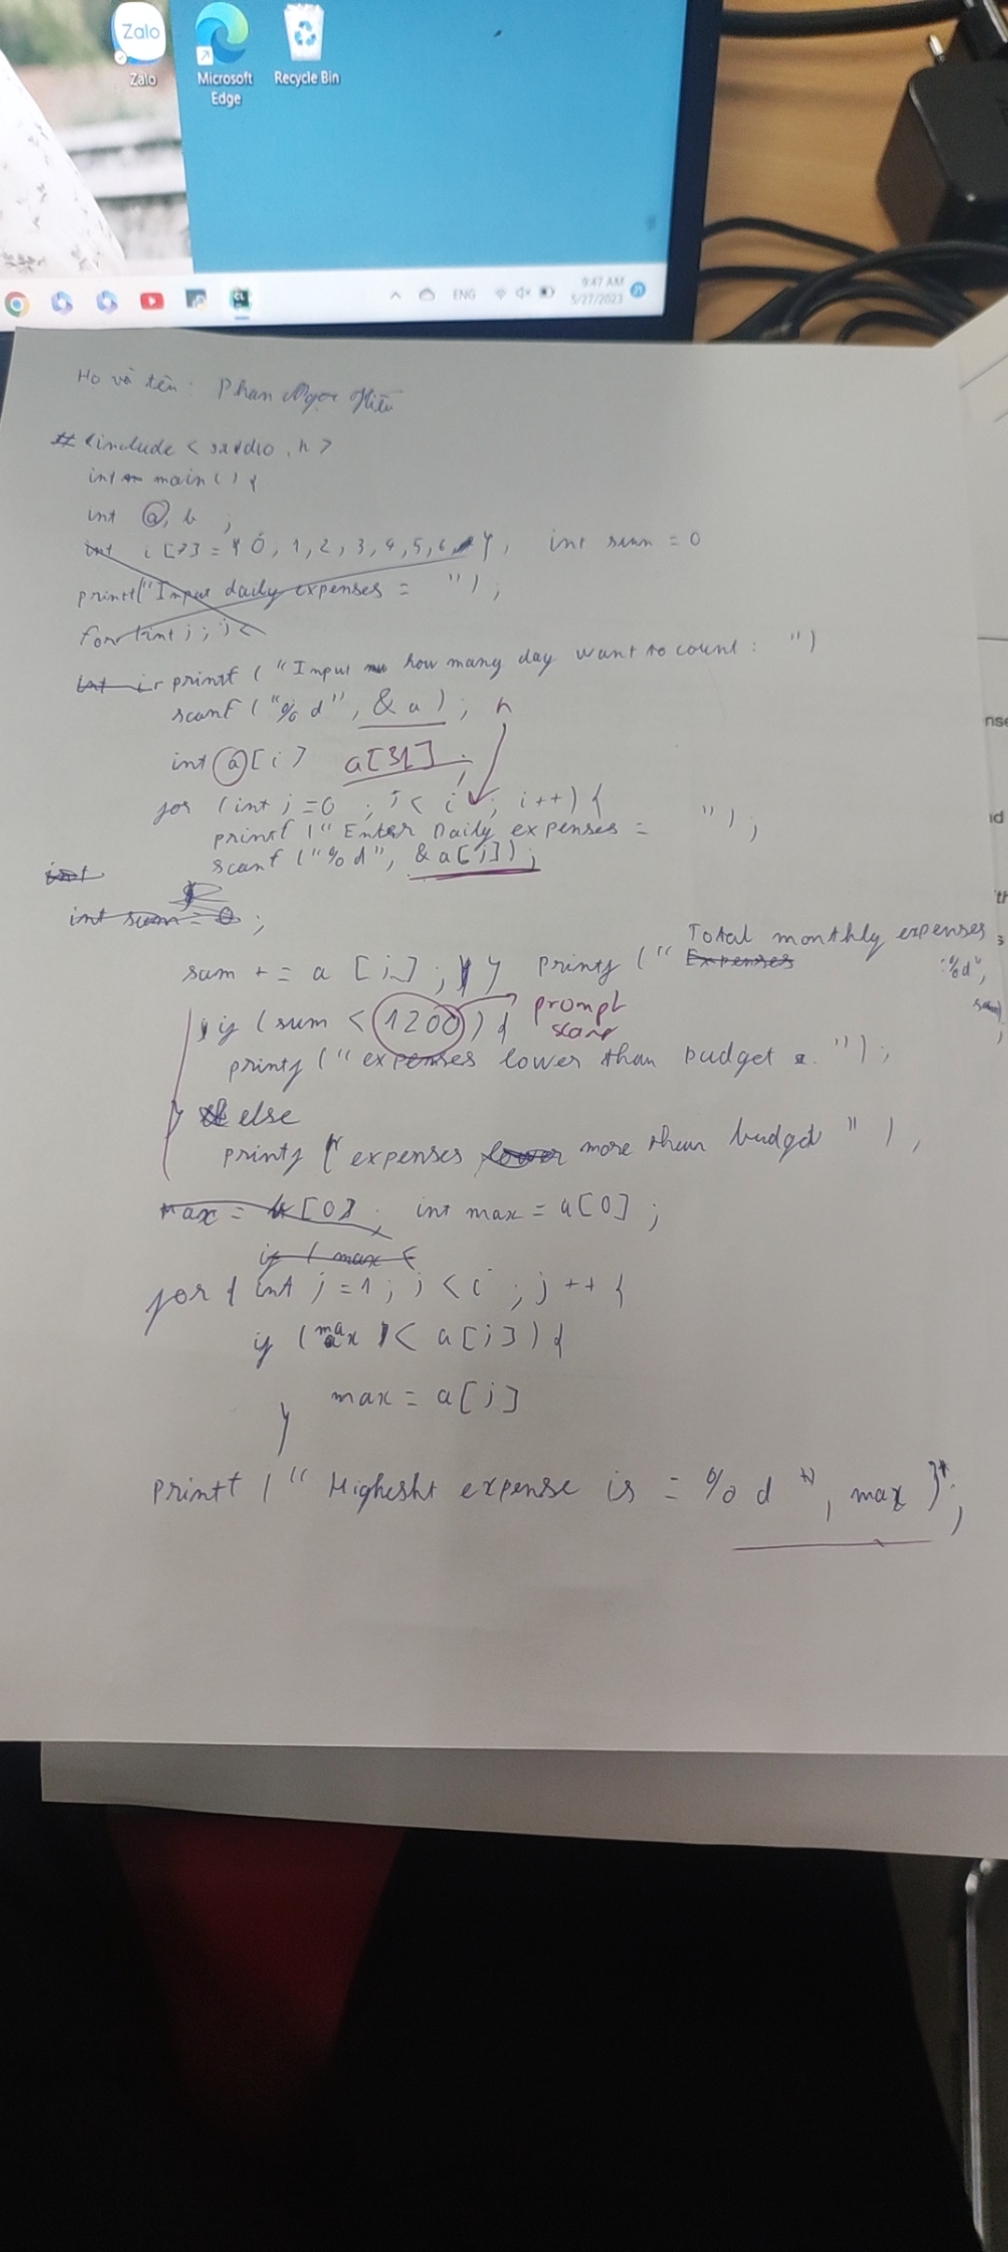 Zalo
Zalo
Microsoft Edge
Recycle Bin
ENG
9:47 AM
5/27/2023
Họ và tên: Phan Ngọc Hiếu
# <include < stdio.h>
int main() {
int a, b ;
int i [7] = { 0, 1, 2, 3, 4, 5, 6 } , int sum = 0
printf("Input daily expenses = ");
for (int j ; j <
int i printf ( "Input how many day want to count : ")
scanf ("%d", & a) ; n
int a [i] a[31] ;
for (int j = 0 ; j < i ; i++) {
printf ( "Enter Daily expenses = ");
scanf ("%d", & a[j]);
int
int sum = 0 ;
sum += a [i] ; } printf (" Expenses Total monthly expenses :%d", sum) ;
if (sum < 1200) { prompt
scanf
printf (" expenses lower than budget . ");
} else
printf (" expenses lower more than budget " ) ,
max = a[0] ; int max = a[0] ;
if ( max <
for ( int j = 1 ; j < i ; j ++ {
if (max < a[j]) {
max = a[j]
}
printf ( " Highesht expense is = %d ", max ) ;
nse
id
th
s